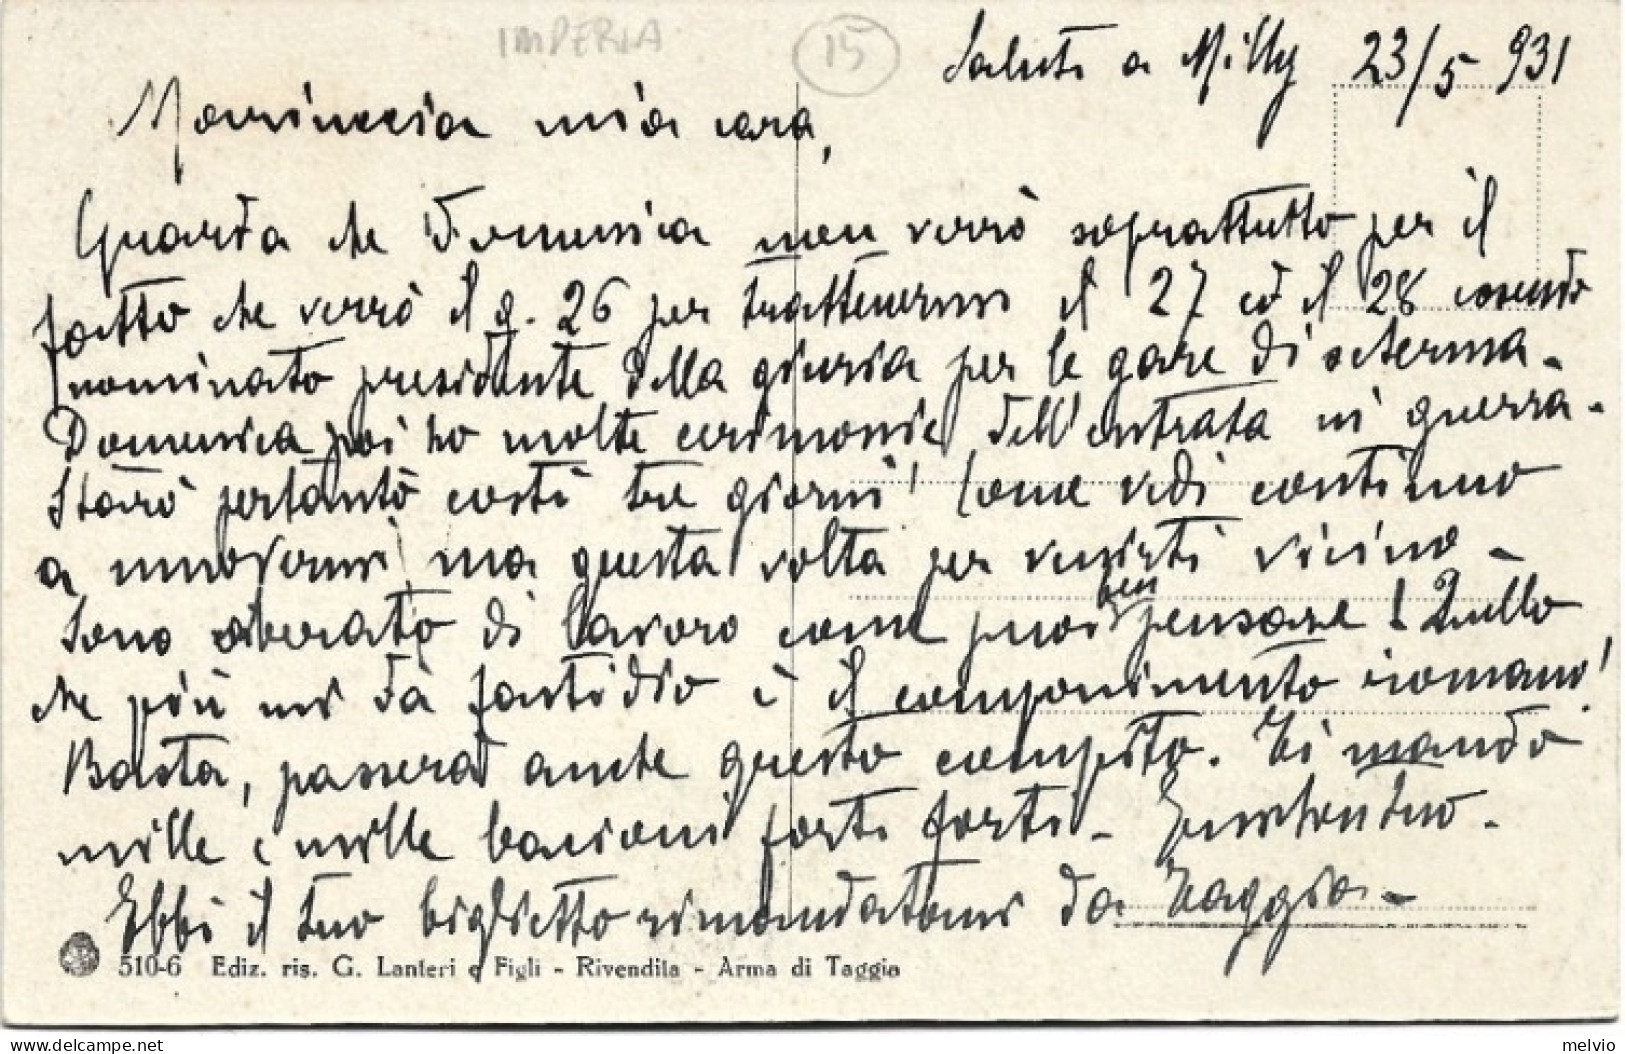 IMPERIA
15
Saluti a Milly 23/5 931
Mariuccia mia cara,
Guarda che domenica non verrò soprattutto per il
fatto che verrò il g. 26 per trattenermi il 27 ed il 28 essendo
nominato presidente della giuria per le gare di scherma.
Domenica poi ho molte cerimonie dell'entrata in guerra.
Starò pertanto costì tre giorni! Come vedi continuo
a muovermi, ma questa volta per venirti vicino.
Sono oberato di lavoro come puoi ben pensare! Quello
che più mi dà fastidio è il componimento romano!
Basta, passerà anche questo compito. Ti mando
mille e mille bacioni forti forti.
Ebbi il tuo biglietto rimandatomi da Taggia.
510-6 Ediz. ris. G. Lanteri e Figli - Rivendita - Arma di Taggia
melvio